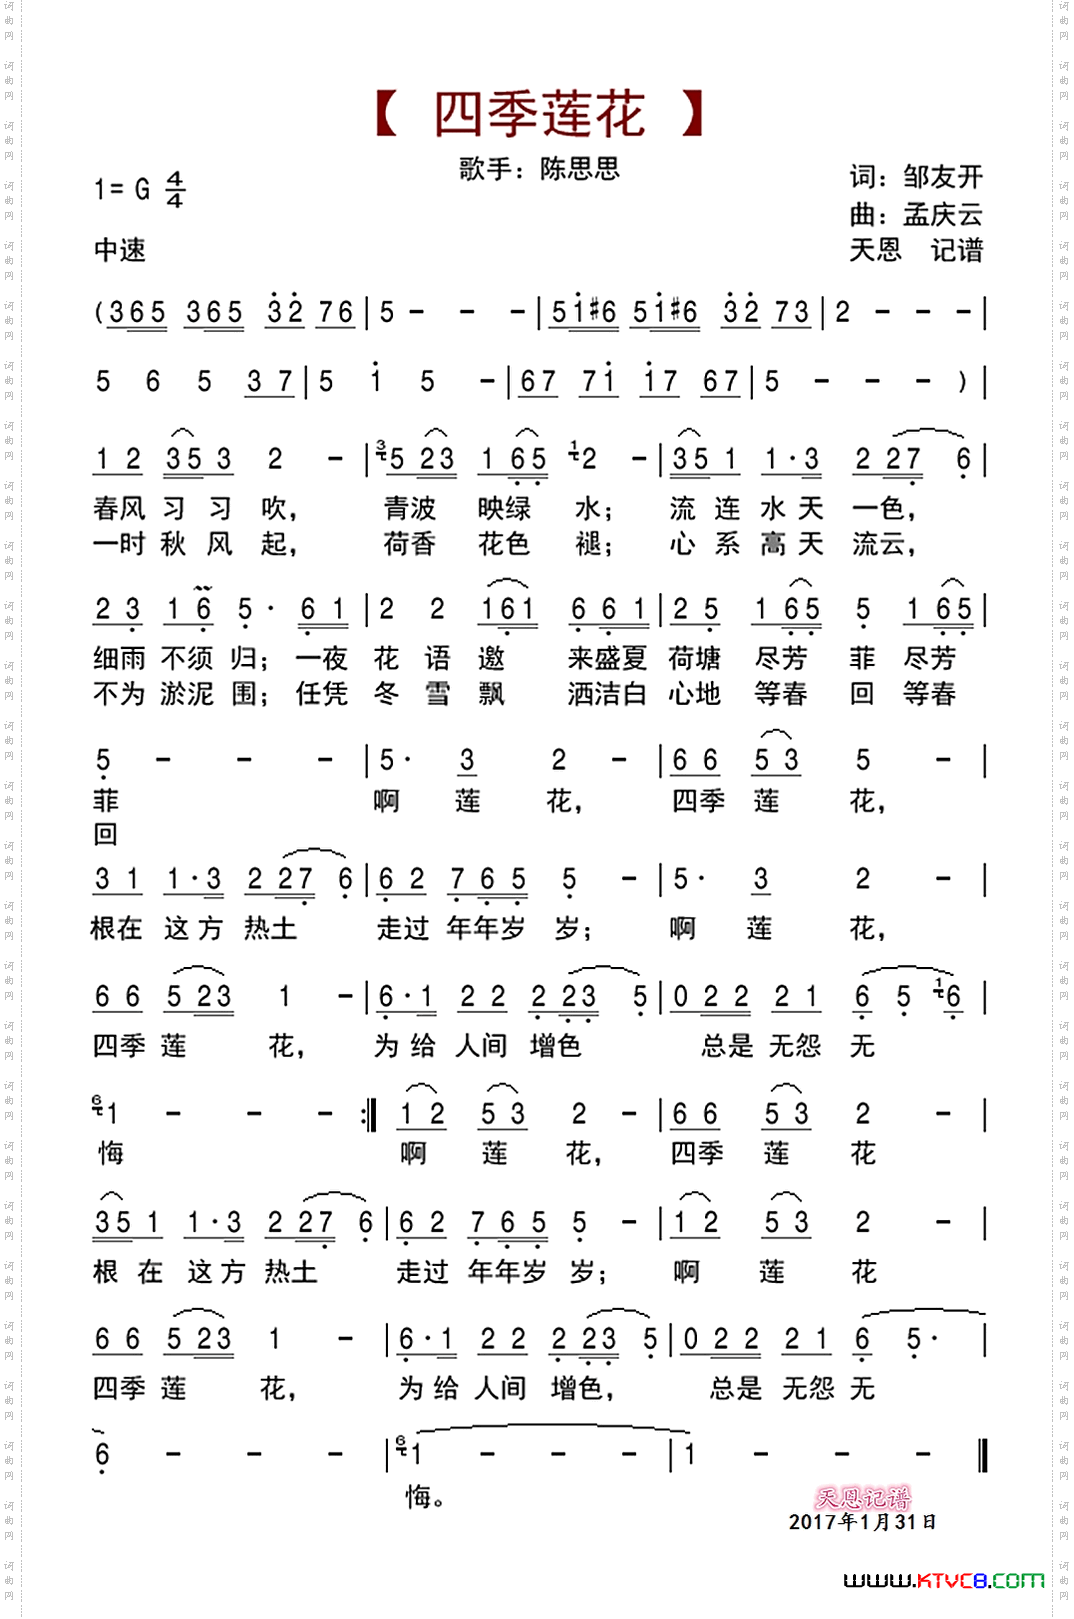 【 四季莲花 】
歌手：陈思思
1= G 4/4
词：邹友开
曲：孟庆云
中速
天恩 记谱
(365 365 32 76 | 5 - - - | 51#6 51#6 32 73 | 2 - - - |
5 6 5 37 | 5 1 5 - | 67 71 17 67 | 5 - - - ) |
12 353 2 - | 3 523 165 1 2 - | 351 1·3 227 6 |
春风 习 习 吹， 青波 映绿 水； 流 连 水 天 一色，
一时 秋 风 起， 荷香 花色 褪； 心 系 高 天 流云，
23 16 5· 61 | 2 2 161 661 | 25 165 5 165 |
细雨 不须 归； 一夜 花 语 邀 来盛夏 荷塘 尽芳 菲 尽芳
不为 淤泥 围； 任凭 冬 雪 飘 洒洁白 心地 等春 回 等春
5 - - - | 5· 3 2 - | 66 53 5 - |
菲 啊 莲 花， 四季 莲 花，
回
31 1·3 227 6 | 62 765 5 - | 5· 3 2 - |
根在 这 方 热土 走过 年年岁 岁； 啊 莲 花，
66 523 1 - | 6·1 22 223 5 | 022 21 6 5 1 6 |
四季 莲 花， 为 给 人间 增色 总是 无怨 无
6 1 - - - :| 12 53 2 - | 66 53 2 - |
悔 啊 莲 花， 四季 莲 花
351 1·3 227 6 | 62 765 5 - | 12 53 2 - |
根 在 这 方 热土 走过 年年岁 岁； 啊 莲 花
66 523 1 - | 6·1 22 223 5 | 022 21 6 5· |
四季 莲 花， 为 给 人间 增色， 总是 无怨 无
6 - - - | 6 1 - - - | 1 - - - |
悔。
天恩记谱
2017年1月31日
www.KTVC8.com